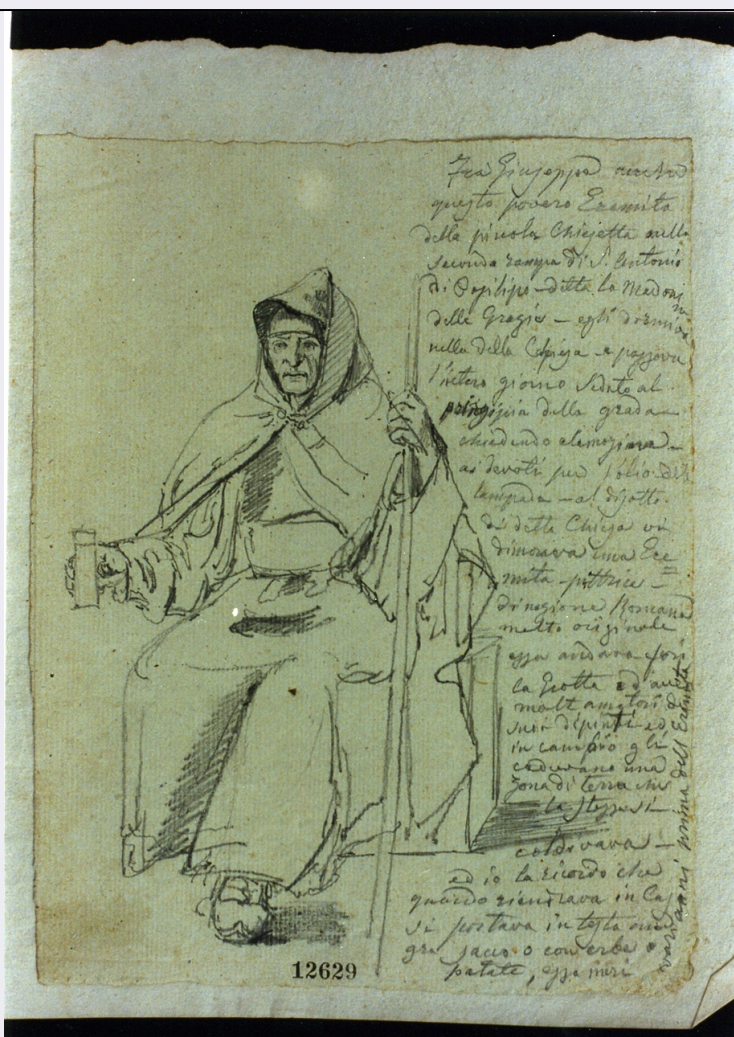 Fra Giuseppe
questo povero Eremita
della piccola Chiesetta nella
seconda rampa di S. Antonio
di Posilipo - detta la Madonna
delle Grazie - egli dormiva
nella detta Chiesa e passava
l'intero giorno seduto al
principio della grada
chiedendo elemosina -
ai devoti per l'olio della
lampada - al disotto
di detta Chiesa vi
dimorava una Ere
mita pittrice =
di nazione Romana
molto originale
essa andava
la Grotta ed
molti amatori di
suoi dipinti ed
in cambio gli
cedevano una
zona di terra che
la stessa si
coltivava -
ed io la ricordo che
quando rientrava in Ca
si portava in testa un
gra sacco o con erbe o
patate, essa morì
vari anni prima dell'Eremita
12629